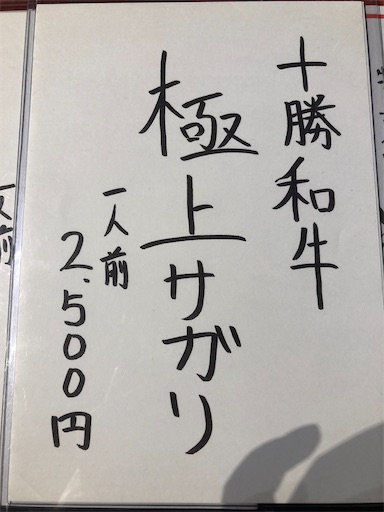 十勝和牛
極上サガリ
一人前
2,500円